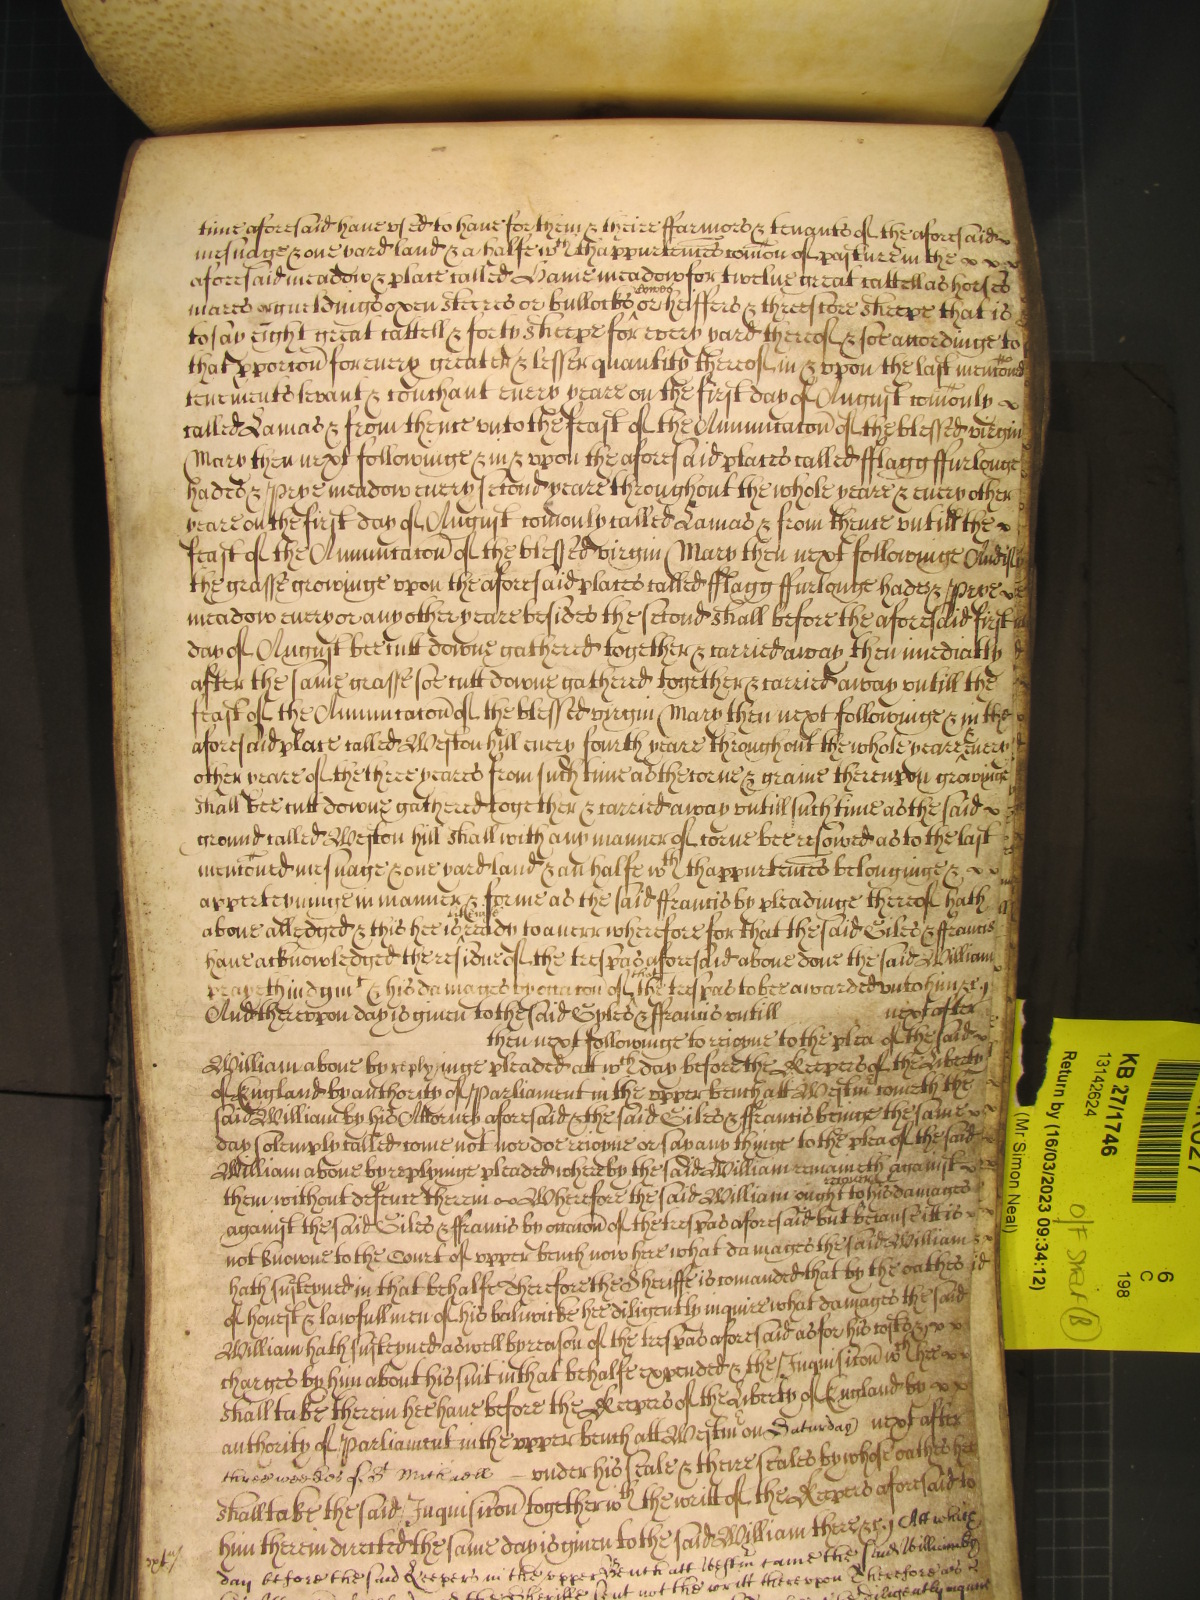 time aforesaid have vsed to have for them & theire ffarmors & tenants of the aforesaid
mesuage & one yard land & a halfe wth thappurtences comon of pasture in the
aforesaid meadow & place called Hame meadow for twelue great cattell as horses
mares or gueldings oxen steeres or bullocks cowes or heiffers & threescore sheepe that is
to say eight great cattell & forty sheepe for every yard thereof & soe accordinge to
that pporcon for every greater & lesser quantity thereof in & vpon the last menconed
tenements levant & couchant every yeare on the first day of August comonly
called Lamas & from thence vnto the feast of the Annuncacon of the blessed virgin
Mary then next followinge & in & vpon the aforesaid places called fflagg ffurlonge
hades & Prye meadow every second yeare throughout the whole yeare & every other
yeare on the first day of August comonly called Lamas & from thence vntill the
feast of the Annuncacon of the blessed virgin Mary then next followinge And if
the grasse growinge vpon the aforesaid places called fflagg ffurlonge hades & Prye
meadow every or any other yeare besides the second shall before the aforesaid first
day of August bee cutt downe gathered together & carried away then imediatly
after the same grasse soe cutt downe gathered together & carried away vntill the
feast of the Annuncacon of the blessed virgin Mary then next followinge & in the
aforesaid place called Weston hill every fourth yeare throughout the whole yeare & every
other yeare of the three yeares from such time as the corne & graine therevpon growinge
shall bee cutt downe gathered together & carried away vntill such time as the said
ground called Weston hill shall with any manner of corne bee resowed as to the last
menconed mesuage & one yard land & an halfe wth thappurtences belonginge &
apperteyninge in manner & forme as the said ffrancis by pleadinge thereof hath
above alledged & this hee is ready to averr wherefore for that the said Giles & ffrancis
have acknowledged the residue of the trespas aforesaid above done the said William
prayeth iudgmt & his damages by occacon of that trespas to bee awarded vnto him &c
And therevpon day is given to the said Gyles & ffrancis vntill next after
then next followinge to reioyne to the plea of the said
William above by replyinge pleaded att wch day before the Keepers of the Liberty
of England by authority of Parliament in the vpper bench att Westm cometh the
said William by his Attorney aforesaid & the said Giles & ffrancis beinge the same
day solemply called come not nor doe reioyne or say any thinge to the plea of the said
William above by replyinge pleaded whereby the said William remaineth against
them without defence therein Wherefore the said William ought to recover his damages
against the said Giles & ffrancis by occacon of the trespas aforesaid but because itt is
not knowne to the Court of vpper bench now here what damages the said William
hath susteyned in that behalfe Therefore the Sheriffe is comanded that by the oathes
of honest & lawfull men of his bailwicke hee diligently inquire what damages the said
William hath susteyned aswell by reason of the trespas aforesaid as for his costs &
charges by him about his suit in that behalfe expended & the Inquisicon wch hee
shall take therein hee have before the Keepers of the Liberty of England by
authority of Parliament in the vpper bench att Westm on Saturday next after
three weekes of St Michaell vnder his seale & theire seales by whose oathes hee
shall take the said Inquisicon together wth the writt of the Keepers aforesaid to
him therein directed the same day is given to the said William there &c Att which
day before the said Keepers in the vpper Bench att Westm came the said William by
the Sheriffe sent not the writt therevpon Therefore as
diligently inquire
KB 27/1746
13142624
Return by (16/03/2023 09:34:12)
(Mr Simon Neal)
6
C
198